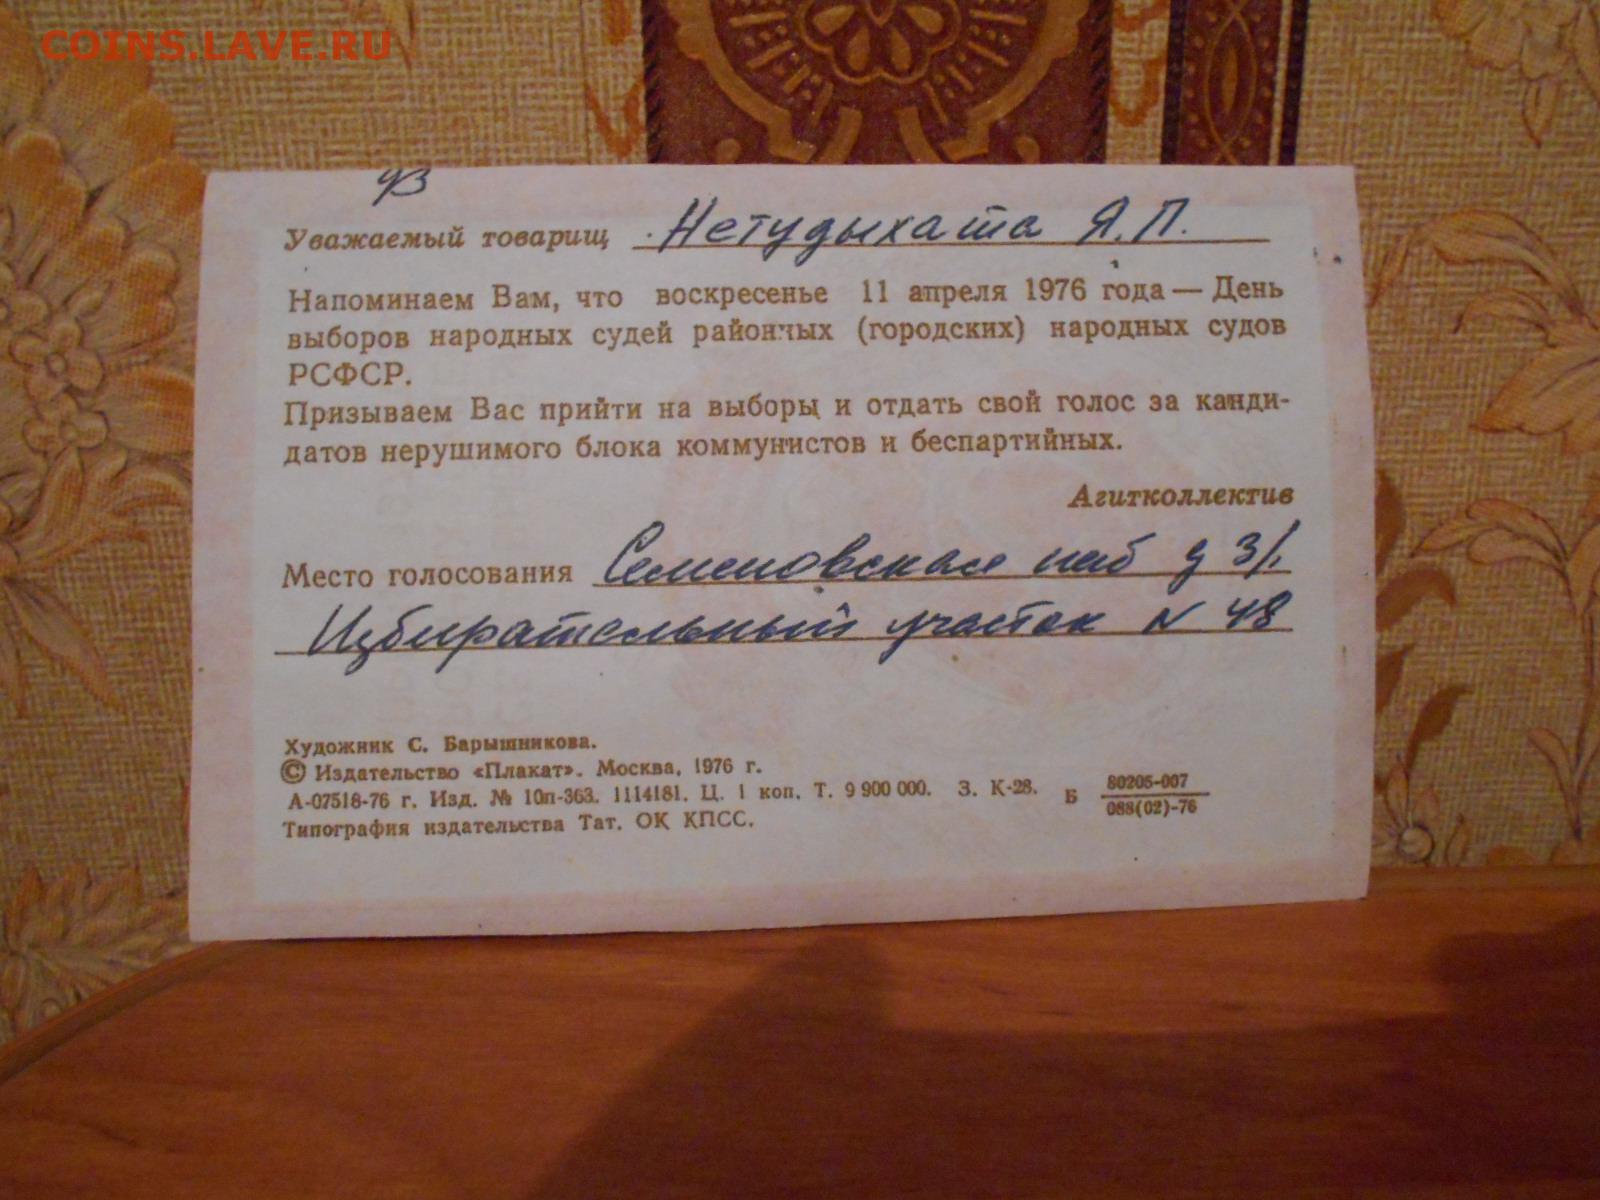 COINS.LAVE.RU
43
Уважаемый товарищ Нетудыхата Я.П.
Напоминаем Вам, что воскресенье 11 апреля 1976 года — День
выборов народных судей районных (городских) народных судов
РСФСР.
Призываем Вас прийти на выборы и отдать свой голос за канди-
датов нерушимого блока коммунистов и беспартийных.
Агитколлектив
Место голосования Семеновская наб д 3/1
Избирательный участок N 48
Художник С. Барышникова.
© Издательство «Плакат». Москва, 1976 г.
А-07518-76 г. Изд. № 10п-363. 1114181. Ц. 1 коп. Т. 9 900 000. З. К-28. Б 80205-007
088(02)-76
Типография издательства Тат. ОК КПСС.